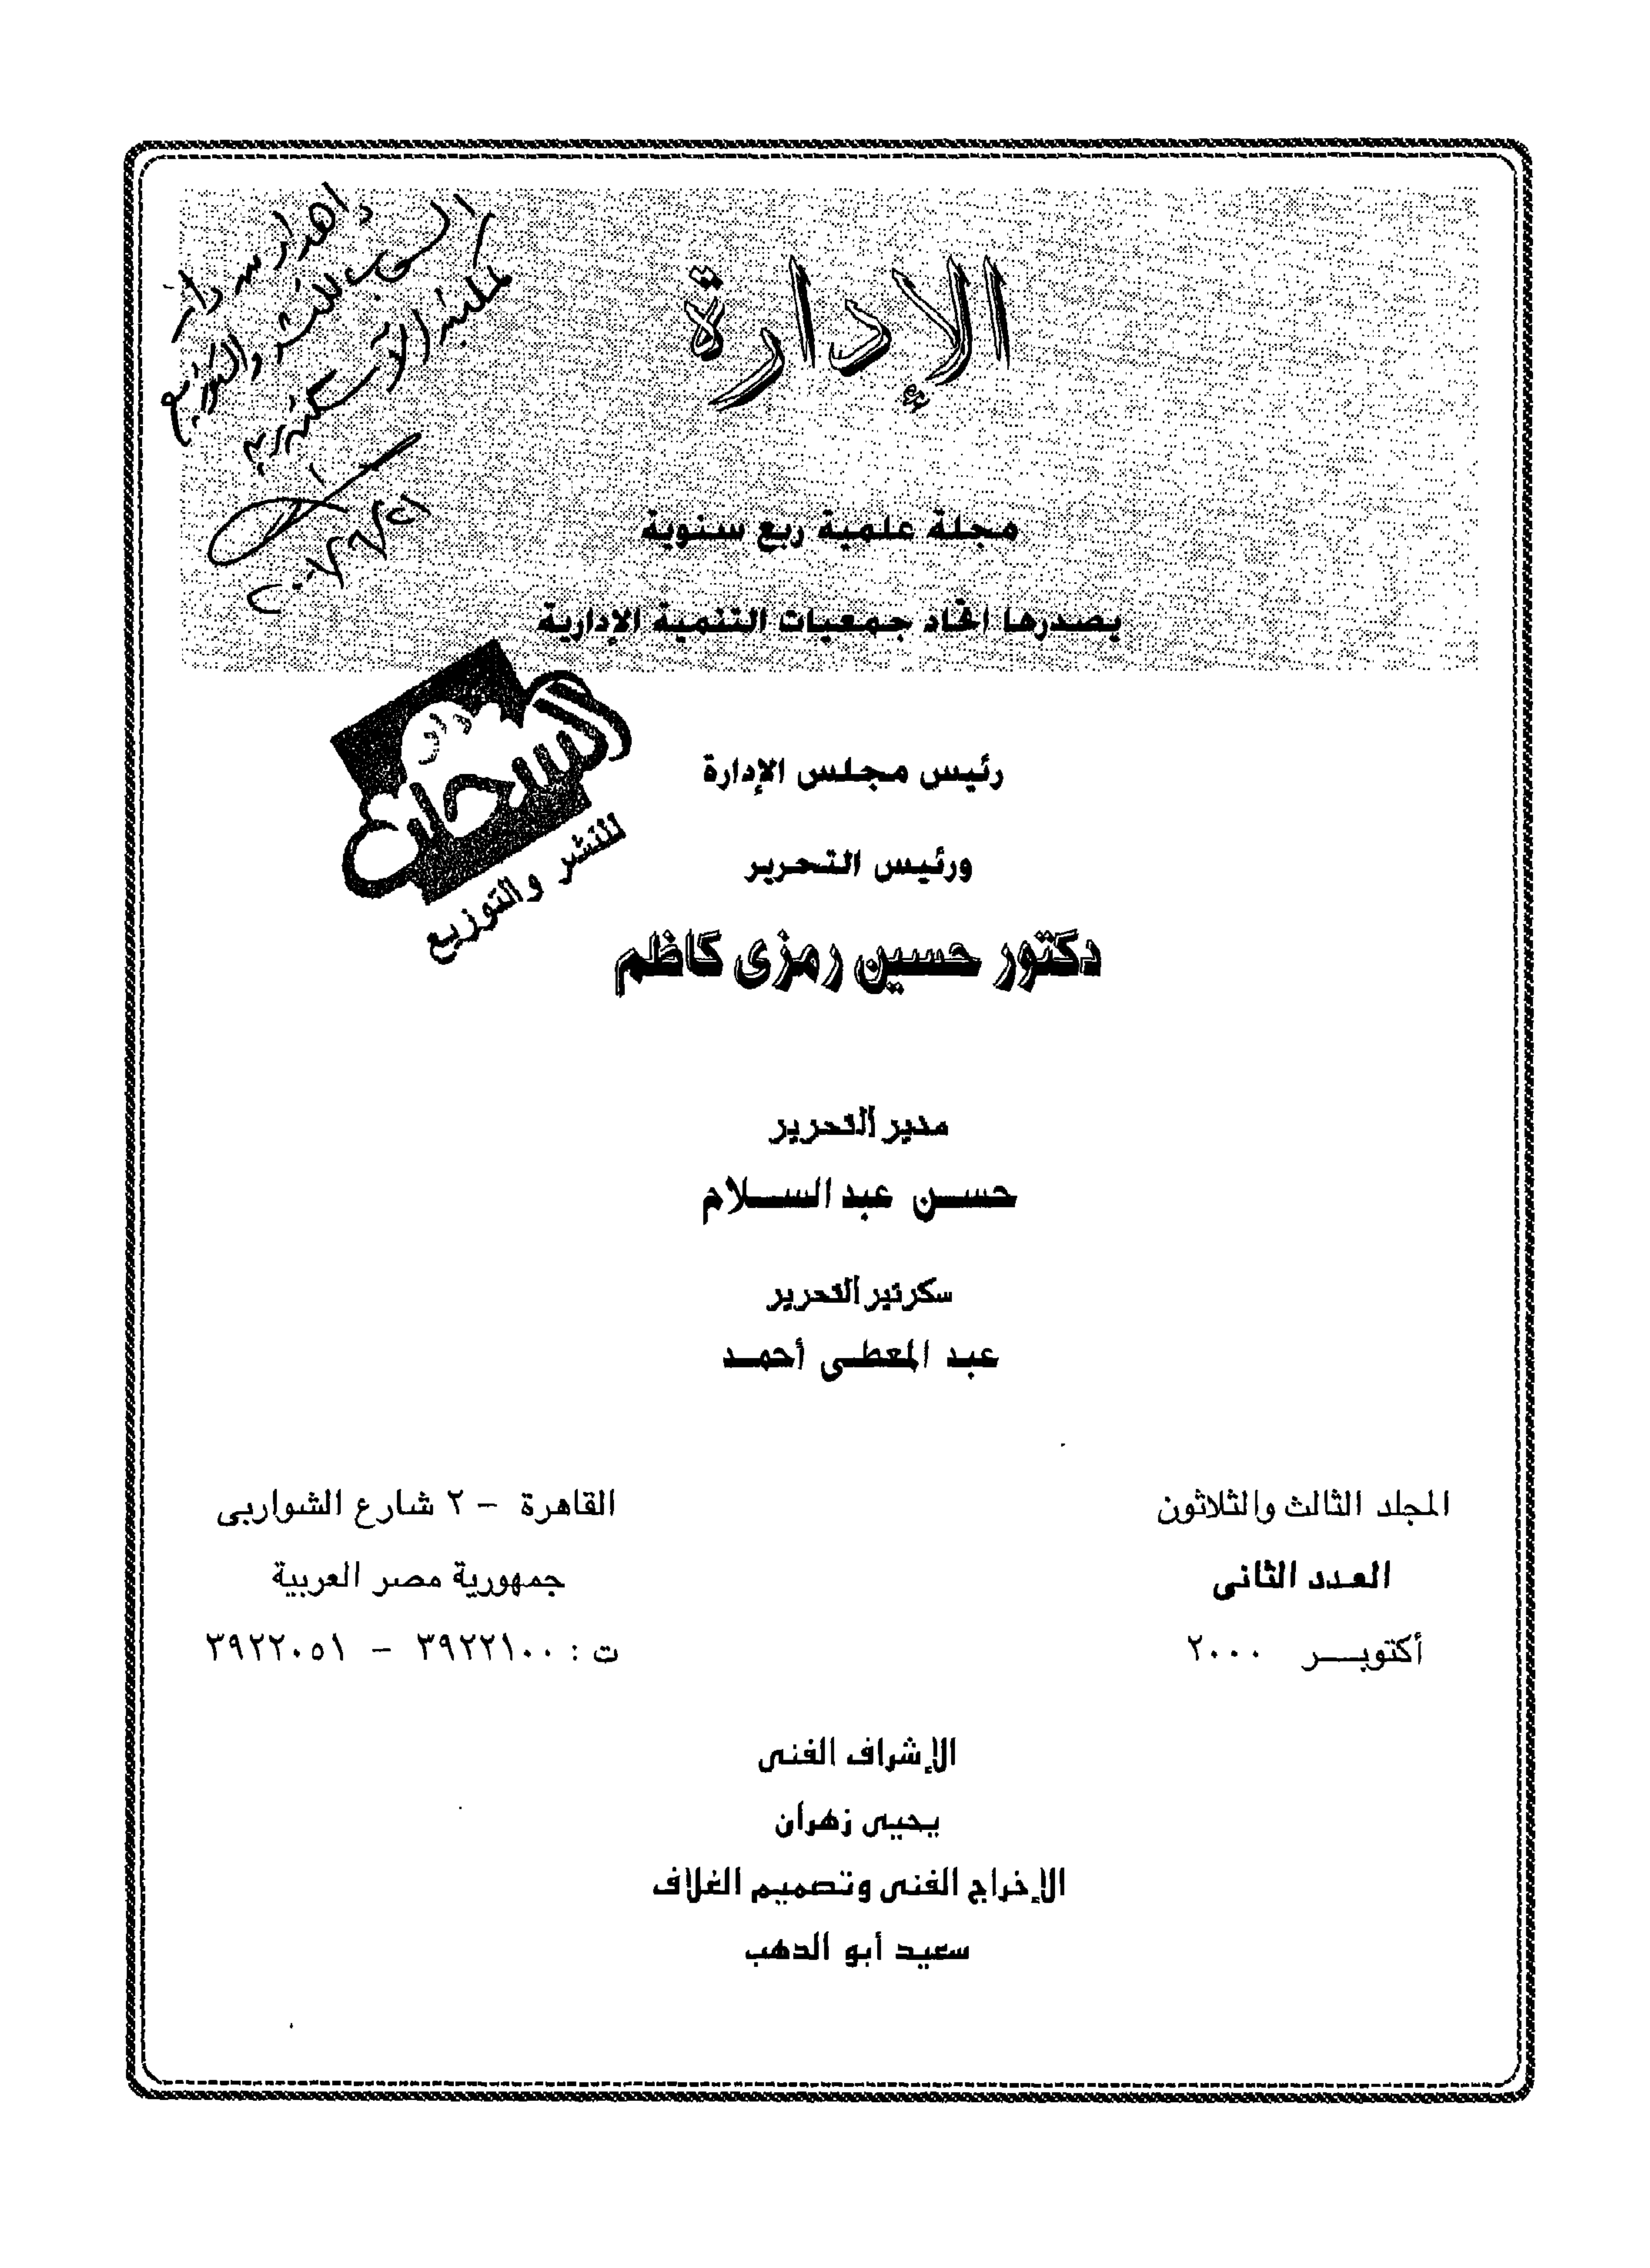 إهداء من دار
السحاب للنشر والتوزيع
لمكتبة الإسكندرية
الإدارة
مجلة علمية ربع سنوية
يصدرها اتحاد جمعيات التنمية الإدارية
دار
السحاب
للنشر والتوزيع
رئيس مجلس الإدارة
ورئيس التحرير
دكتور حسين رمزى كاظم
مدير التحرير
حســن عبد الســلام
سكرتير التحرير
عبد المعطى أحمــد
المجلد الثالث والثلاثون
العدد الثانى
أكتوبــر ٢٠٠٠
القاهرة – ٢ شارع الشواربى
جمهورية مصر العربية
ت : ٣٩٢٢١٠٠ – ٣٩٢٢٠٥١
الإشراف الفنى
يحيى زهران
الإخراج الفنى وتصميم الغلاف
سعيد أبو الدهب